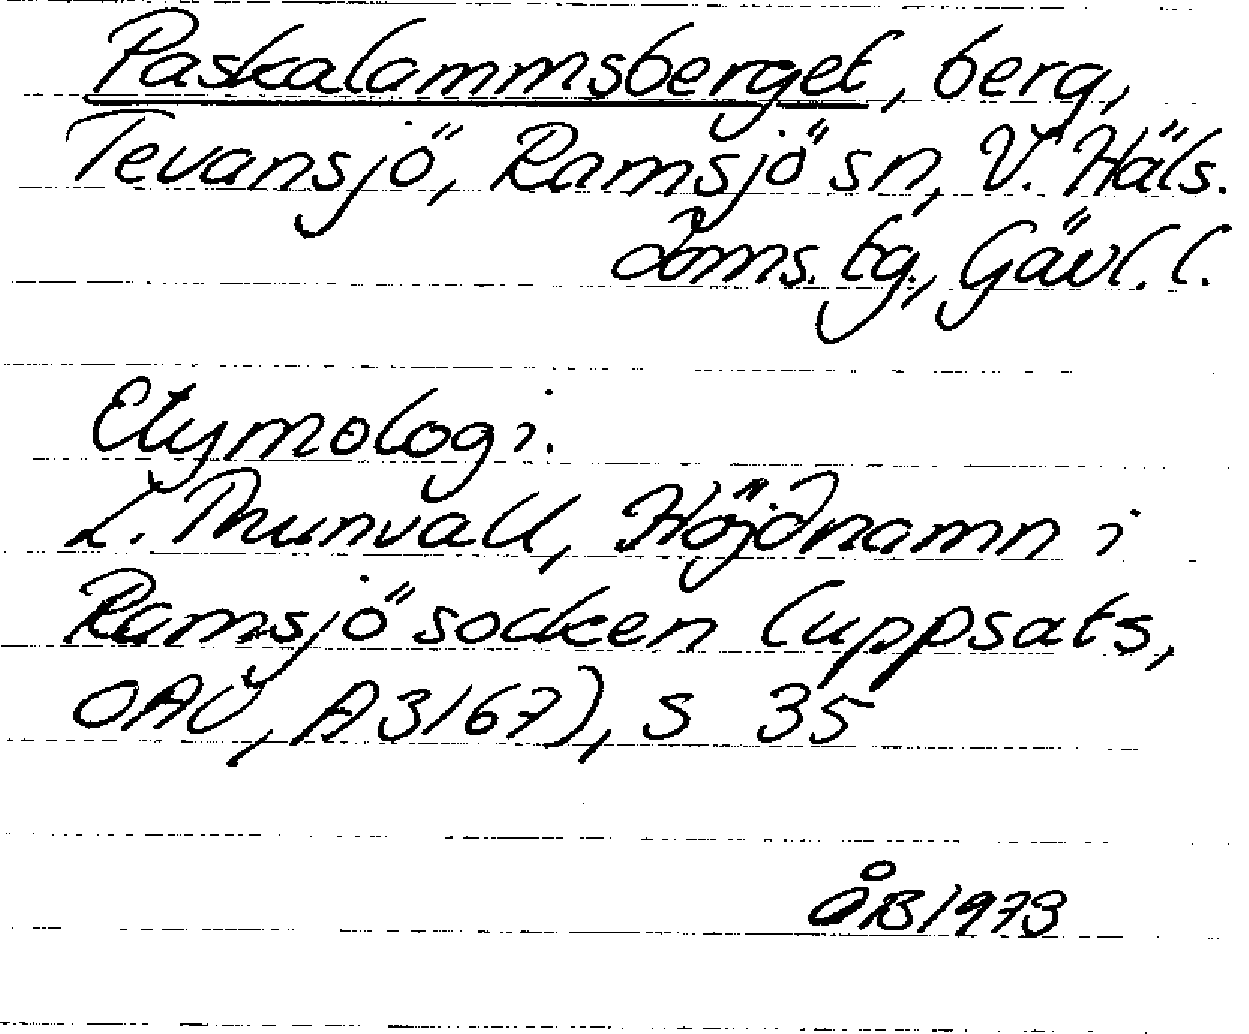 Paskalammsberget, berg,
Tevansjö, Ramsjö sn, V. Häls.
doms. tg., Gävl. l.
Etymologi.
L. Thunvall, Höjdnamn i
Ramsjö socken (uppsats,
OAU, A3167), s 35
ÅB 1973